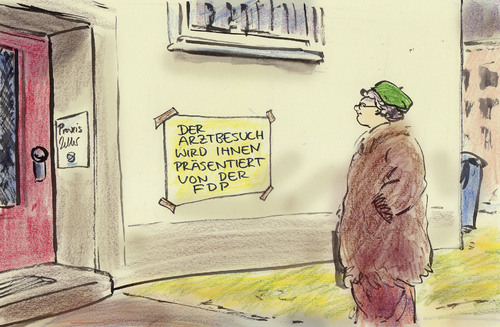 Praxis
DER
ARZTBESUCH
WIRD IHNEN
PRÄSENTIERT
VON DER
FDP